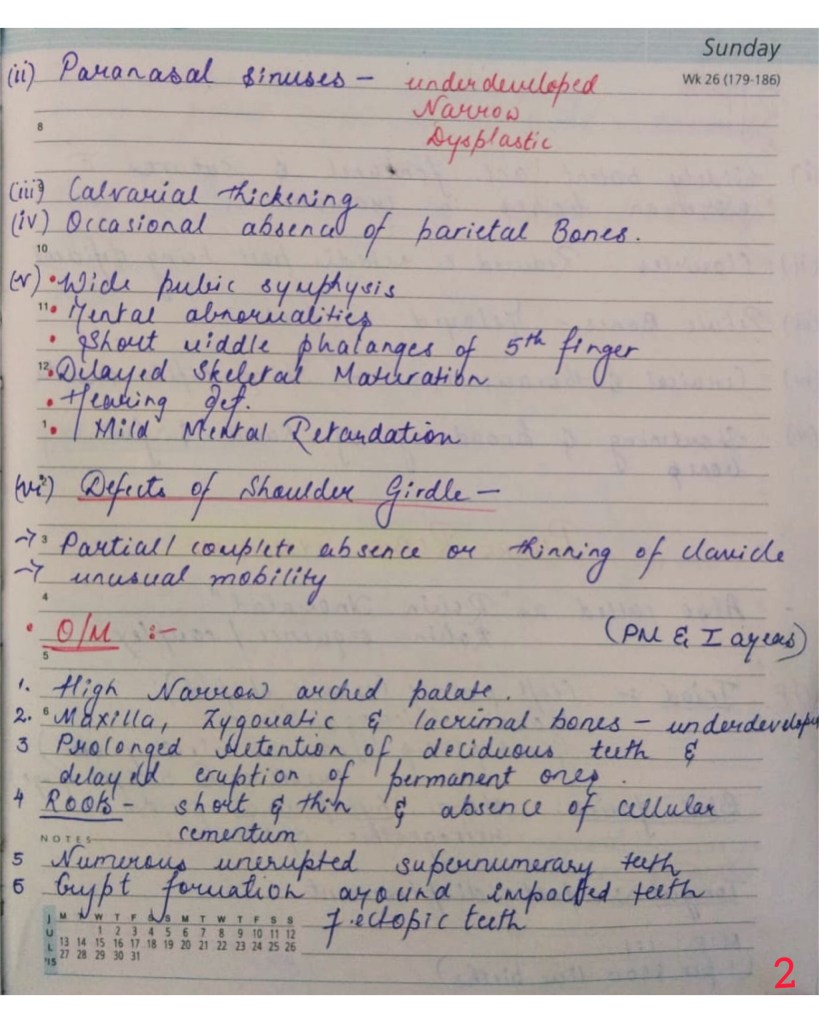 Sunday
Wk 26 (179-186)
(ii) Paranasal sinuses - underdeveloped
Narrow
8
Dysplastic
(iii) Calvarial thickening
(iv) Occasional absence of parietal Bones.
10
(v) • Wide pubic symphysis
11 • Dental abnormalities
• Short middle phalanges of 5th finger
12 • Delayed Skeletal Maturation
• Hearing def.
1 • Mild Mental Retardation
(vi) Defects of Shoulder Girdle -
3 → Partial/ complete absence or thinning of clavicle
→ unusual mobility
4
• O/M :- (PM & I ayears)
5
1. High Narrow arched palate.
2. 6 Maxilla, Zygomatic & lacrimal bones - underdevelop
3 Prolonged Retention of deciduous teeth &
delayed eruption of permanent ones.
4 Roots - short & thin & absence of cellular
NOTES
cementum
5 Numerous unerupted supernumerary teeth
6 Crypt formation around impacted teeth
7. ectopic teeth
JUL '15
M T W T F S S M T W T F S S
1 2 3 4 5 6 7 8 9 10 11 12
13 14 15 16 17 18 19 20 21 22 23 24 25 26
27 28 29 30 31
2